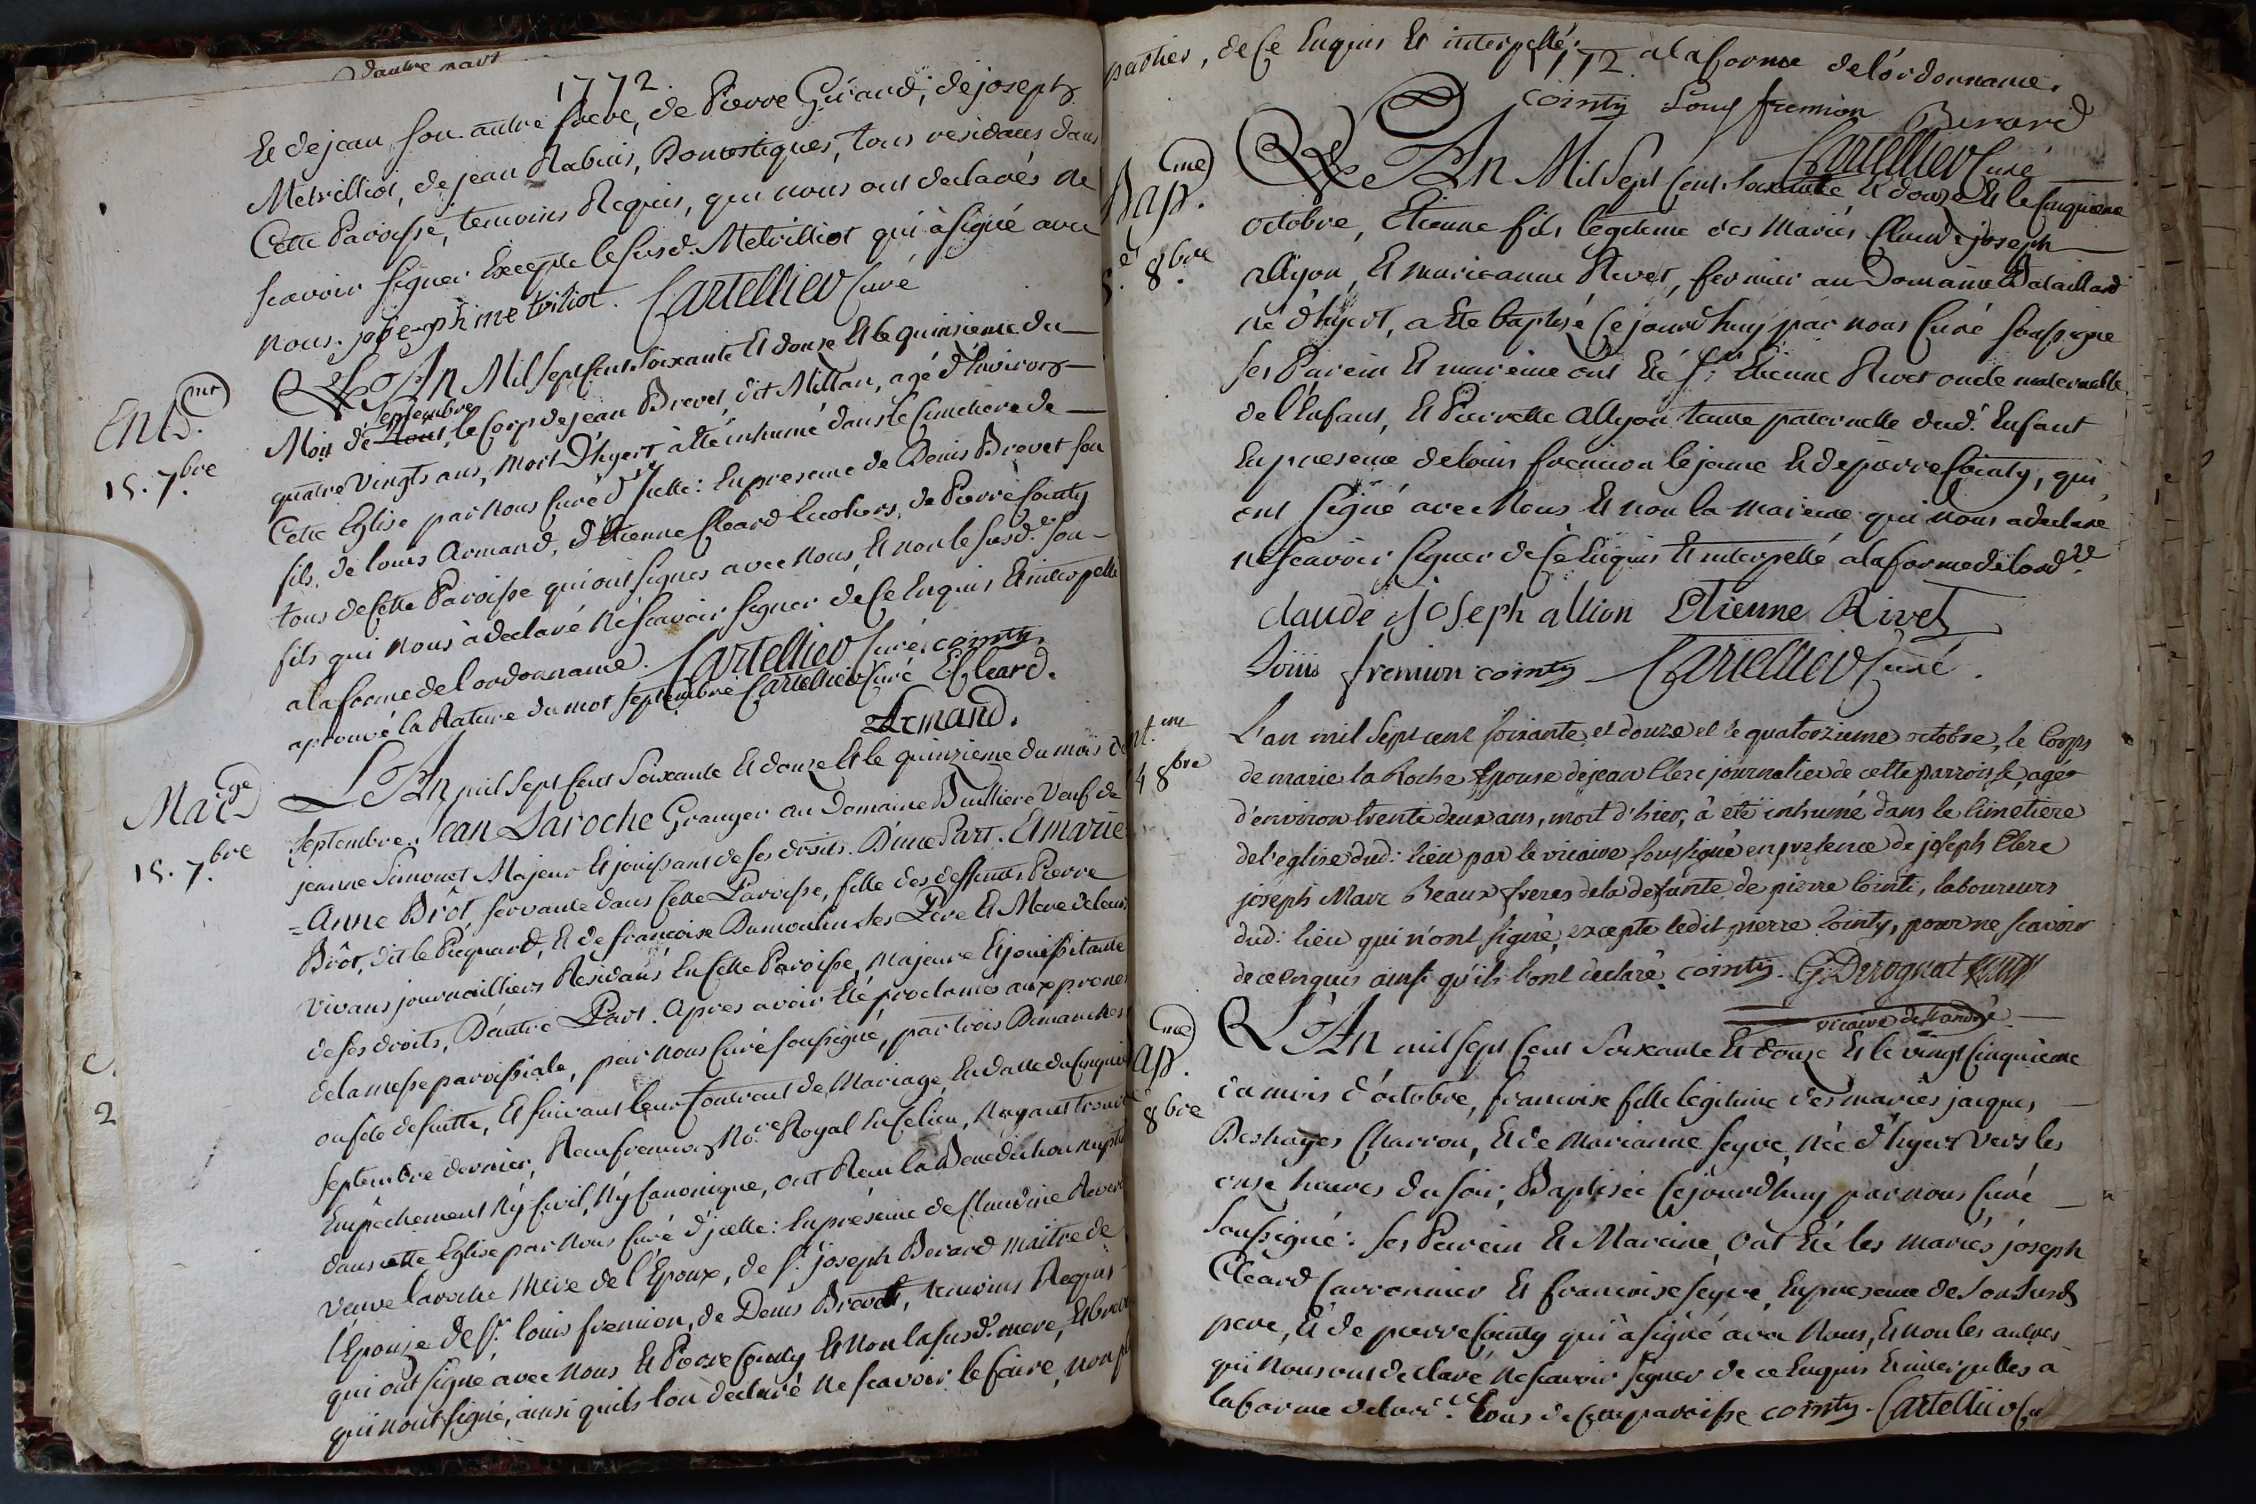 d'autre part
1772
Et de jean son autre frere, de Pierre Giraud, de joseph
Metrilliot, de jean Rabuis, Domestiques, tous residans dans
Cette Paroisse, temoins Requis, qui nous ont declarés ne
scavoir signer Excepte le susd. Metrilliot qui à signé avec
nous. joseph metriliot. Cartellier Curé
Ent.mt
15. 7.bre
L'An Mil Sept Cent Soixante Et douze Et le quinsieme du
septembre
Mois de Aout, le Corp de jean Brevet, dit Mittan, agé d'Environ
quatre vingts ans, mort D'hyert à été inhumé dans le Cimetiere de
Cette Eglise par Nous Curé d'jcelle: En presence de Denis Brevet son
fils, de louis Armand, d'Etienne Cleard Ecoliers, de Pierre Cointy
tous de Cette Paroisse qui ont signés avec Nous, Et non le susd. son
fils qui nous à declaré Ne scavoir signer de Ce Enquis Et interpellé
a la forme de l'ordonnance. Cartellier Curé, cointy
aprouvé la Rature du mot septembre Cartellier Curé E. Cleard.
Armand.
Mar.ge
15. 7.bre
L'An mil sept Cent Soixante Et douze Et le quinzieme du mois de
septembre. Jean Laroche Granger au Domaine Builliere Veuf de
jeanne Simonet Majeur Et jouissant de ses droits. D'une Part. Et marie
=Anne Brôt, servante dans Cette Paroisse, fille des deffunts Pierre
Brôt, dit le Picquard, Et de francoise Dumoulin ses Pere Et Mere de leur
vivans journailliers Residans En Cette Paroisse, Majeure Et jouissitante
de ses droits, D'autre Part. Apres avoir Eté proclamés aux prones
de la messe paroissiale, par nous Curé soussigné, par trois Dimanches
consecutifs de suitte, Et suivant leur Contract de Mariage En datte du Cinquie
septembre dernier, Recu fremion No.re Royal En Ce lieu, N'ayant trouvé
Empechement Ny Civil, Ny Canonique, ont Recu la Benediction nuptia
dans cette Eglise par Nous Curé d'jcelle: En presence de Claudine Revere
veuve laroche Mere de l'Epoux, de s.r joseph Berard maitre de
l'Epouse de s.r louis fremion, de Denis Brevet, temoins Requis
qui ont signé avec Nous Et Pierre Cointy Et Non la susd. mere, Et brevet
qui n'ont signé, ainsi quils l'on declaré ne scavoir le faire, non
C.
2
parties, de Ce Enquis Et interpellé. a la forme de l'ordonnance.
1772.
cointy Louis fremion Berard
Cartellier Curé
Bap.me
5.e 8.bre
L'An Mil Sept Cent Soixante Et douze Et le Cinquieme
octobre, Etienne fils legitime des Mariés Claude joseph
allyon, Et marieanne Rivet, fermier au Domaine Bataillard
né d'hyert, a été baptisé Ce jourd'huy par nous Curé soussigné
ses Parein Et mareine ont Eté s.r Etienne Rivet oncle maternelle
de l'Enfant, Et Pierrette Allyon tante paternelle dud. Enfant
En presence de louis fremion le jeune Et de pierre Cointy, qui
ont signé avec Nous Et non la mareine qui nous a declaré
ne scavoir signer de Ce Enquis Et interpellé a la forme de l'ord.ce
claude joseph allion Etienne Rivet
Loüis fremion cointy Cartellier Curé.
nt.mt
4 8bre
L'an mil sept cent soixante et douze et le quatorzieme octobre, le Corps
de marie la Roche Epouse de jean Clerc journalier de cette parroisse, agée
d'environ trente deux ans, mort d'hier, à été inhumé dans le Cimetiere
de l'eglise dud: lieu par le vicaire soussigné en presence de joseph Clerc
joseph Marc beaux freres de la defunte de pierre Cointi, laboureurs
dud: lieu qui n'ont signé, excepte ledit pierre Cointy, pour ne scavoir
de ce enquis ainsi qu'ils l'ont declaré. cointy. G. Derognat
vicaire de st andré
ap.me
8bre
L'An mil sept Cent Soixante Et douze Et le vingt Cinquieme
du mois d'octobre, francoise fille legitime des mariés jacques
Deshayes Charron, Et de Marianne seyve, Née d'hyert vers les
onse heures du soir, Baptisée Ce jourd'huy par nous Curé
soussigné: ses Parein Et Mareine, ont Eté les mariés joseph
Cleard Carronnier Et francoise seyve, En presence de son susd.
pere, Et de pierre Cointy qui à signé avec Nous, Et non les autres
qui Nous ont declaré Ne scavoir signer de ce Enquis Et interpellés a
la forme de l'ord.ce tous de Cette paroisse cointy. Cartellier Cu